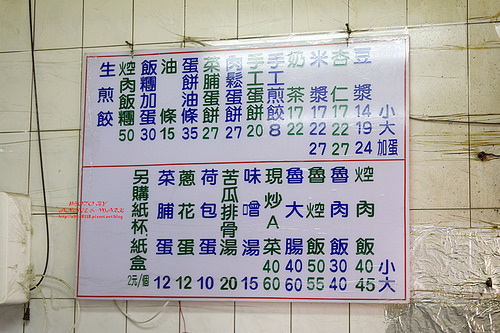 豆漿 14 19 24
杏仁 17 22 27
米漿 17 22 27
奶茶 17 22
手工煎餃 8
手工蛋餅 20
肉鬆蛋餅 27
菜脯蛋餅 27
蛋餅油條 35
油條 15
飯糰加蛋 30
焢肉飯糰 50
生煎餃
小
大
加蛋
焢肉飯 40 45
魯肉飯 30 40
魯焢飯 50 55
魯大腸 40 60
現炒A菜 40 60
味噌湯 15
苦瓜排骨湯 20
荷包蛋 10
蔥花蛋 12
菜脯蛋 12
另購紙杯紙盒 2元/個
小
大